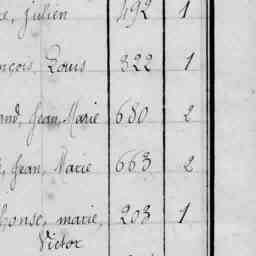 Julien 492 1
ançois, Louis 822 1
and, Jean, Marie 680 2
Jean, Marie 663 2
honse, marie, 203 1
Victor